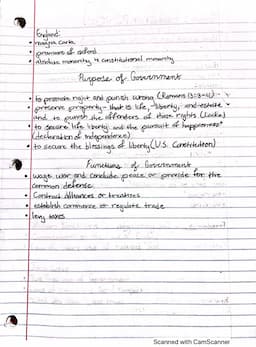 England:
• magna carta
• provisions of oxford
• absolute monarchy → constitutional monarchy
Purpose of Government
• to promote right and punish wrong (Romans 13:3-4)
• preserve property - that is life, liberty, and estate -
and to punish the offenders of those rights (Locke)
• to secure life liberty and the pursuit of happiness"
(declaration of independence)
• to secure the blessings of liberty (U.S. Constitution)
Functions of Government
• wage war and conclude peace or provide for the
common defense
• Contract Alliances or treaties
• establish commerce or regulate trade
• levy taxes
Scanned with CamScanner